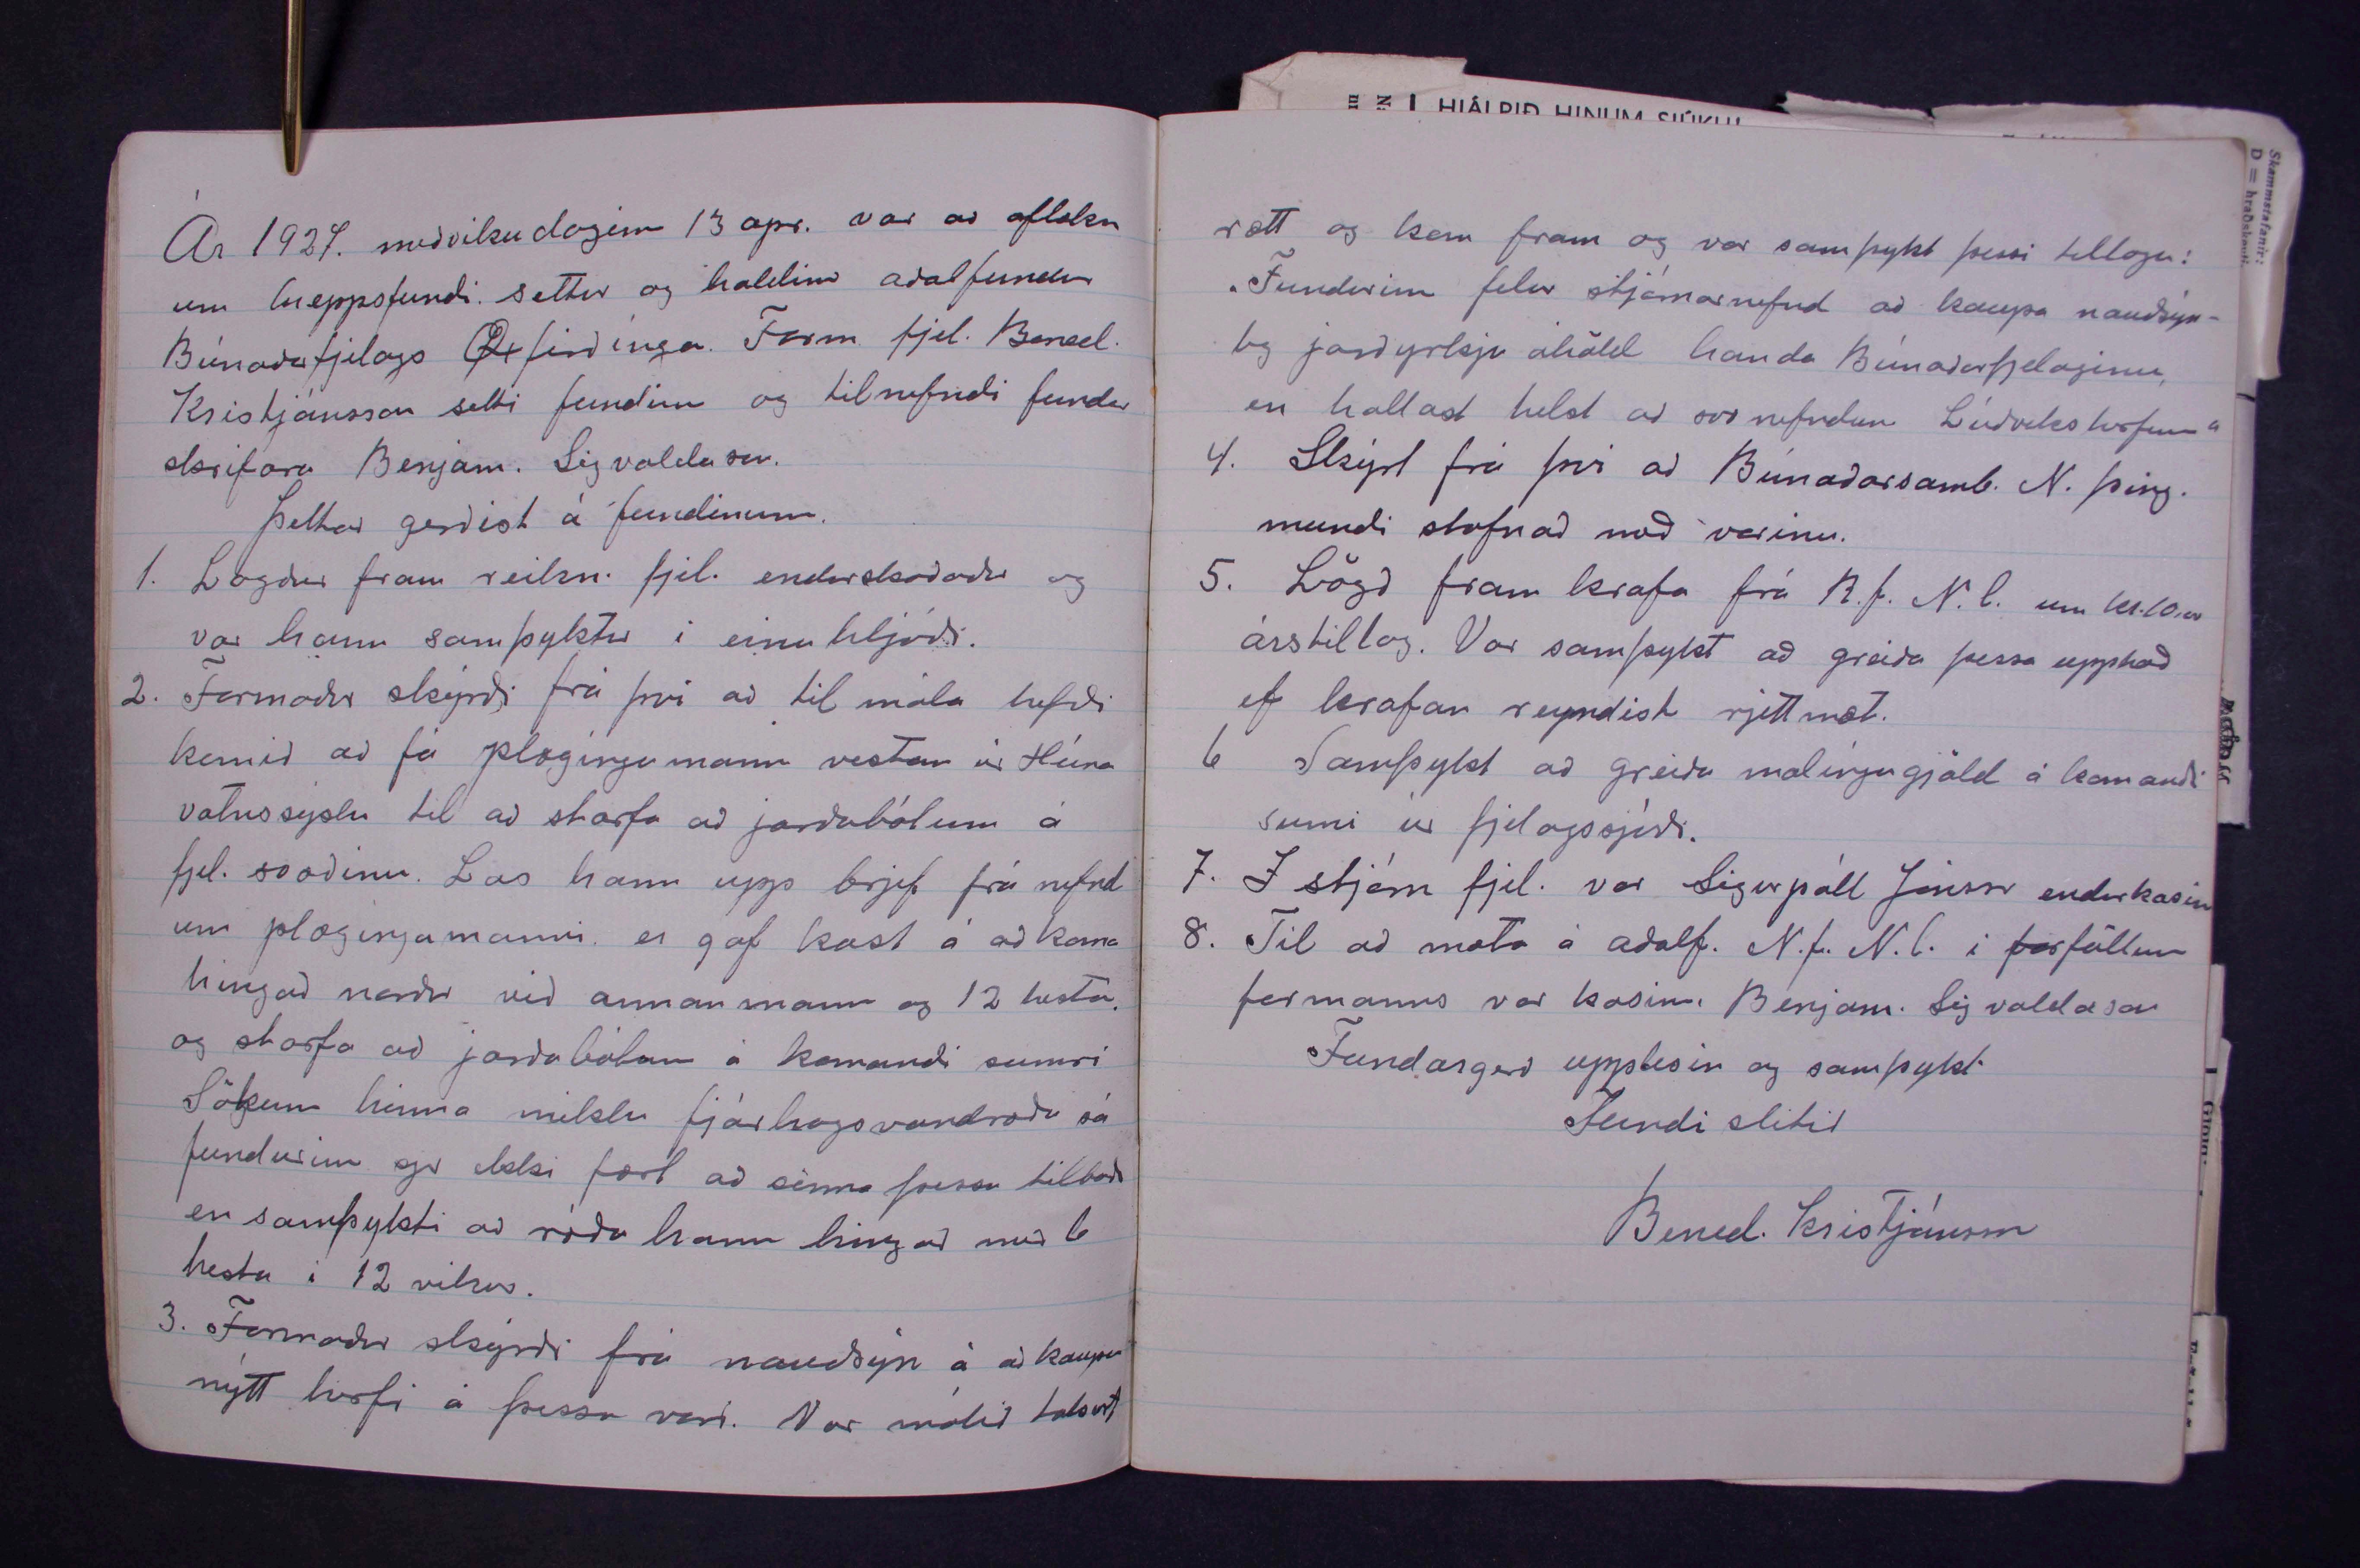 Ár 1927. miðvikudaginn 13 apr. var að afloknu
um hreppsfundi. settur og haldinn aðalfundur
Búnaðarfjelags Öxfirðinga. Form. fjel. Bened.
Kristjánsson setti fundinn og tilnefndi fundar
skrifara Benjam. Sigvaldason.
Þettað gerðist á fundinum.
1. Lagður fram reikn. fjel. endurskoðaður og
var hann samþyktur í einu hljóði.
2. Formaður skýrði frá því að til mála hefði
komið að fá plægingamann vestan úr Húna
vatnssýslu til að starfa að jarðabótum á
fjel. svæðinu. Las hann upp brjef frá nefnd
um plægingamanni. er gaf kost á að koma
hingað norður við annan mann og 12 hesta.
og starfa að jarðabótum á komandi sumri
Sökum hinna miklu fjárhagsvandræða sá
fundurinn sjer ekki fært að sinna þessu tilboði
en samþykti að ráða hann hingað með 6
hesta í 12 vikur.
3. Formaður skýrði frá nauðsýn á að kaupa
nýtt herfi á þessu vori. Var málið talsvert
HJÁLPIÐ HINUM SJÚKU!
Skammstafanir:
D = hraðskeyti.
rætt og kom fram og var samþykt þessi tillaga:
„Fundurinn felur stjórnarnefnd að kaupa nauðsýn-
leg jarðyrkju áhöld handa Búnaðarfjelaginu,
en hallast helst að svo nefndum Lúðvíksherfum"
4. Skýrt frá því að Búnaðarsamb. N. Þing.
mundi stofnað með vorinu.
5. Lögð fram krafa frá R.f. N.l. um kr. 10.00
árstillag. Var samþykt að greiða þessa upphæð
ef krafan reyndist rjettmæt.
6 Samþykt að greiða mælingagjöld á komandi
sumri úr fjelagssjóði.
7. I stjórn fjel. var Sigurpáll Jónsson endurkosinn
8. Til að mæta á aðalf. R.f. N.l. í forföllum
formanns var kosinn. Benjam. Sigvaldason
Fundargerð upplesin og samþykt
Fundi slitið
Bened. Kristjánsson